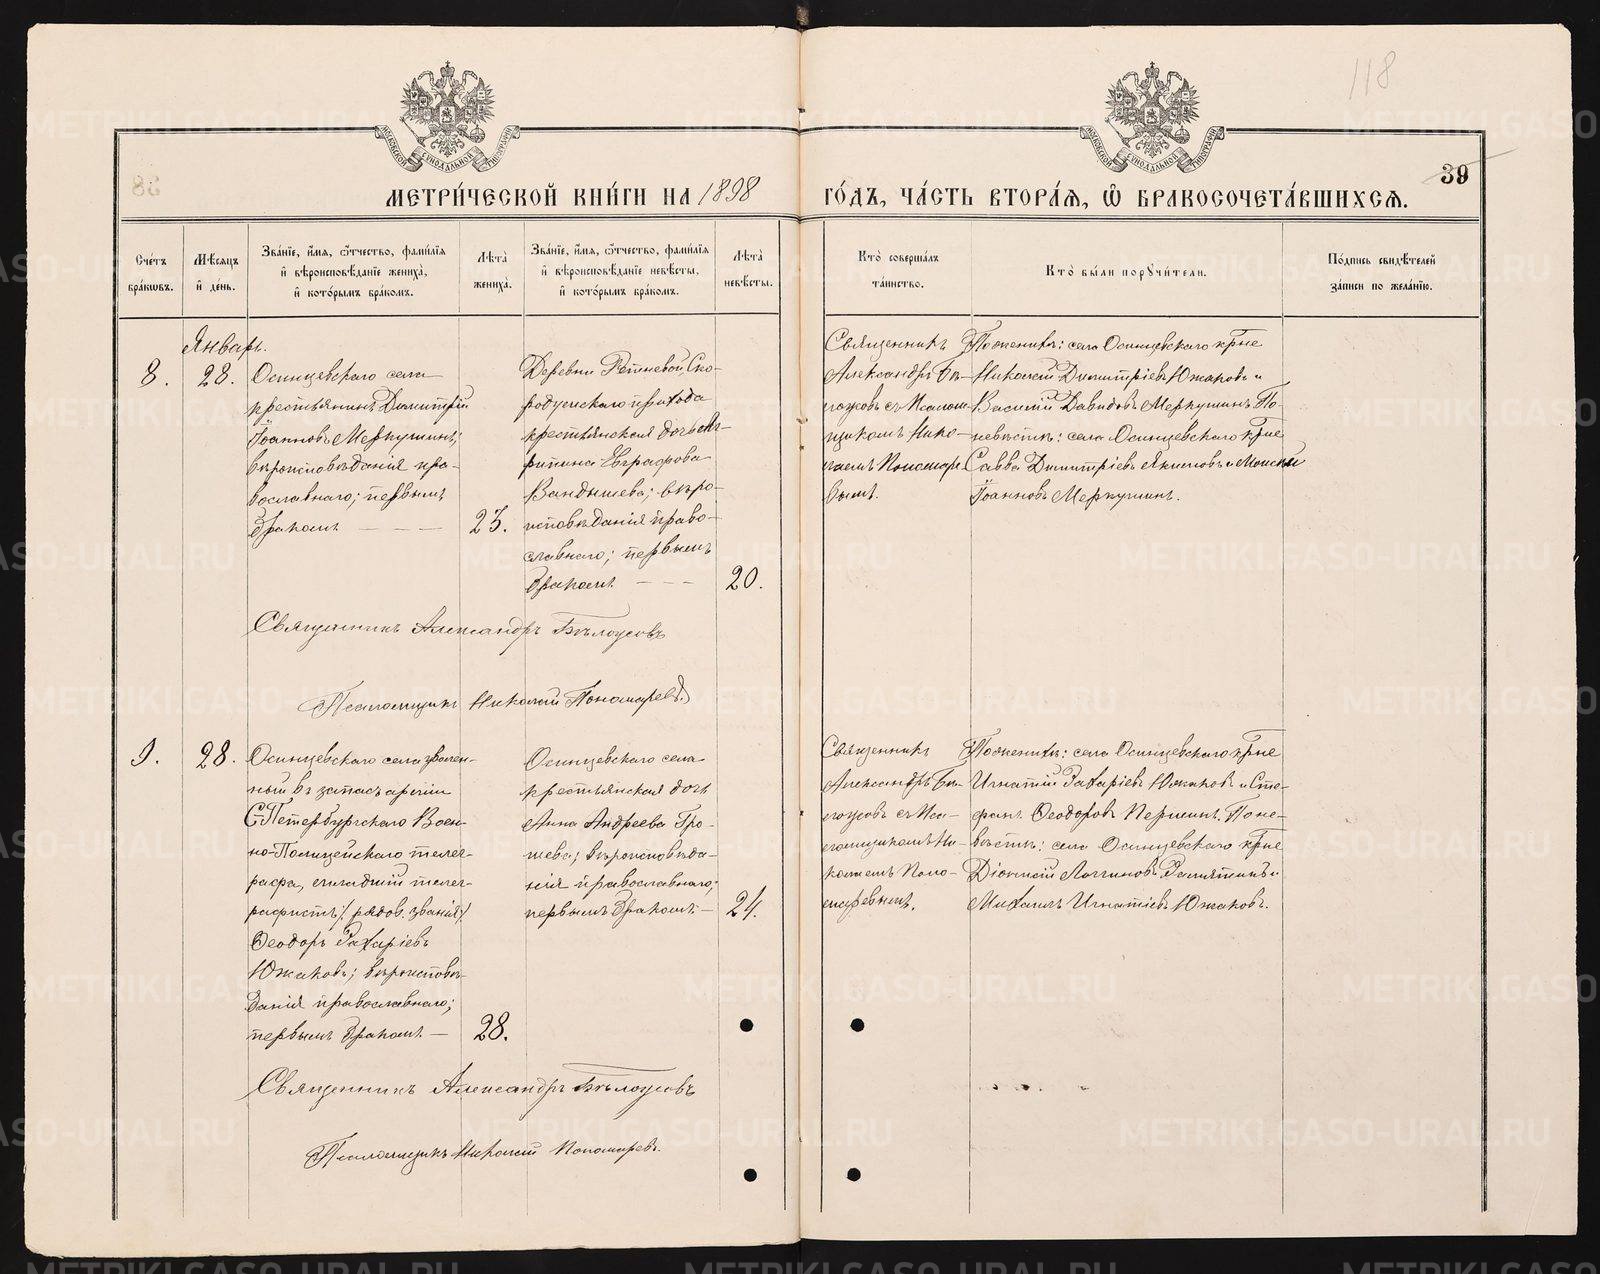 118
39
МЕТРИ́ЧЕСКОЙ КНИ́ГИ НА 1898 ГО́ДЪ, ЧА́СТЬ ВТОРА́Я, Ѡ БРАКОСОЧЕТА́ВШИХСЯ.
Сче́тъ бра́ковъ.
Мѣ́сяцъ и҆ де́нь.
Зва́нїе, и҆́мя, ѻ҆́тчество, фами́лїя
и҆ вѣроисповѣ́данїе жениха̀,
и҆ кото́рымъ бра́комъ.
Лѣ́та жениха̀.
Зва́нїе, и҆́мя, ѻ҆́тчество, фами́лїя
и҆ вѣроисповѣ́данїе невѣ́сты,
и҆ кото́рымъ бра́комъ.
Лѣ́та невѣ́сты.
Кто̀ соверша́лъ та́инство.
Кто̀ бы́ли порꙋчи́тели.
По́дпись свидѣ́телей за́писи по жела́нїю.
Январь.
8.
28.
Осинцевскаго села
крестьянинъ Димитрій
Іоанновъ Меркушинъ;
вѣроисповѣданія пра-
вославнаго; первымъ
бракомъ — — —
23.
Деревни Рѣшневой, Ско-
родумскаго прихода
крестьянская дочь Аг-
рипина Евграфова
Вандышева; вѣро-
исповѣданія право-
славнаго; первымъ
бракомъ — — —
20.
Священникъ
Александръ Бѣ-
лоусовъ съ Псалом-
щикомъ Нико-
лаемъ Пономаре-
вымъ.
По женихѣ: села Осинцевскаго кр͠не
Николай Димитріевъ Южаковъ и
Василій Давидовъ Меркушинъ. По
невѣстѣ: села Осинцевскаго кр͠не
Савва Димитріевъ Якимовъ и Моисей
Іоанновъ Меркушинъ.
Священникъ Александръ Бѣлоусовъ
Псаломщикъ Николай Пономаревъ.
9.
28.
Осинцевскаго села уволен-
ный въ запасъ арміи
С.-Петербургскаго Воен-
но-Полицейскаго телег-
рафа, младшій телег-
рафистъ /рядов. званія/
Ѳеодоръ Захаріевъ
Южаковъ; вѣроисповѣ-
данія православнаго;
первымъ бракомъ —
28.
Осинцевскаго села
крестьянская дочь
Анна Андреева Гро-
шева; вѣроисповѣда-
нія православнаго;
первымъ бракомъ —
24.
Священникъ
Александръ Бѣ-
лоусовъ съ Пса-
ломщикомъ Ни-
колаемъ Поно-
маревымъ.
По женихѣ: села Осинцевскаго кр͠не
Игнатій Захаріевъ Южаковъ и Сте-
фанъ Ѳеодоровъ Першинъ. По не-
вѣстѣ: села Осинцевскаго кр͠не
Діонисій Логгиновъ Замятинъ и
Михаилъ Игнатіевъ Южаковъ.
Священникъ Александръ Бѣлоусовъ
Псаломщикъ Николай Пономаревъ.